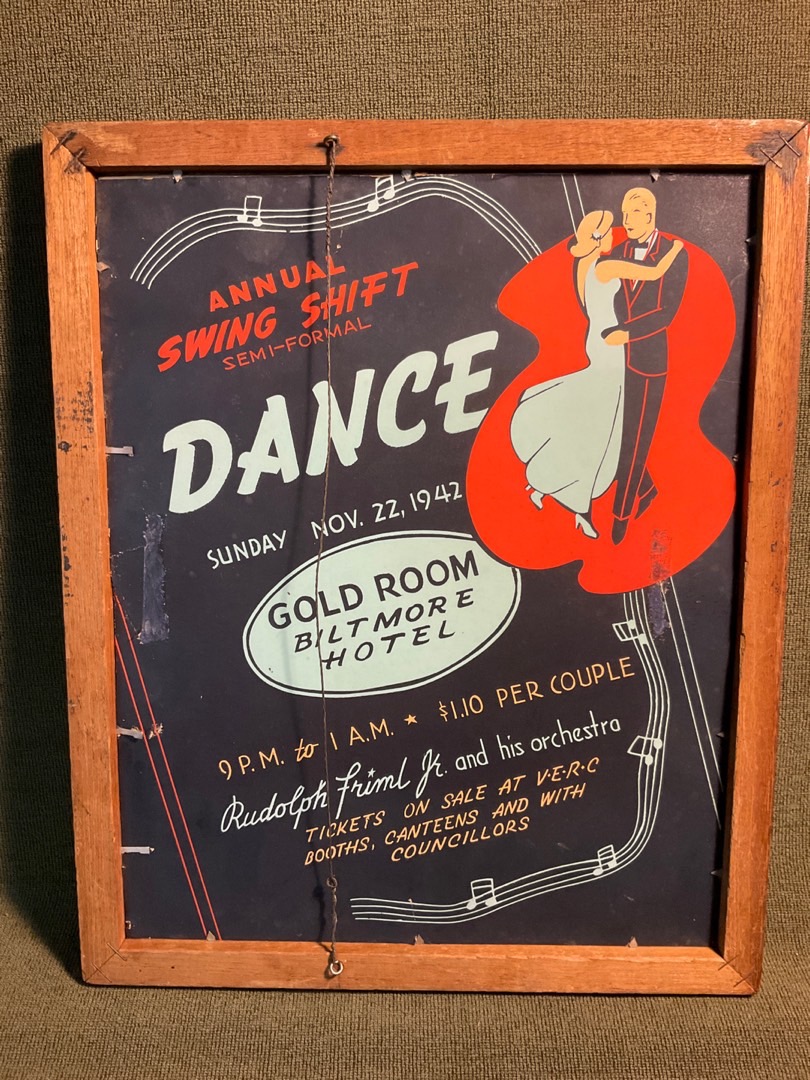 ANNUAL
SWING SHIFT
SEMI-FORMAL
DANCE
SUNDAY NOV. 22, 1942
GOLD ROOM
BILTMORE
HOTEL
9 P.M. to 1 A.M. ★ $1.10 PER COUPLE
Rudolph Friml Jr. and his orchestra
TICKETS ON SALE AT V·E·R·C
BOOTHS, CANTEENS AND WITH
COUNCILLORS